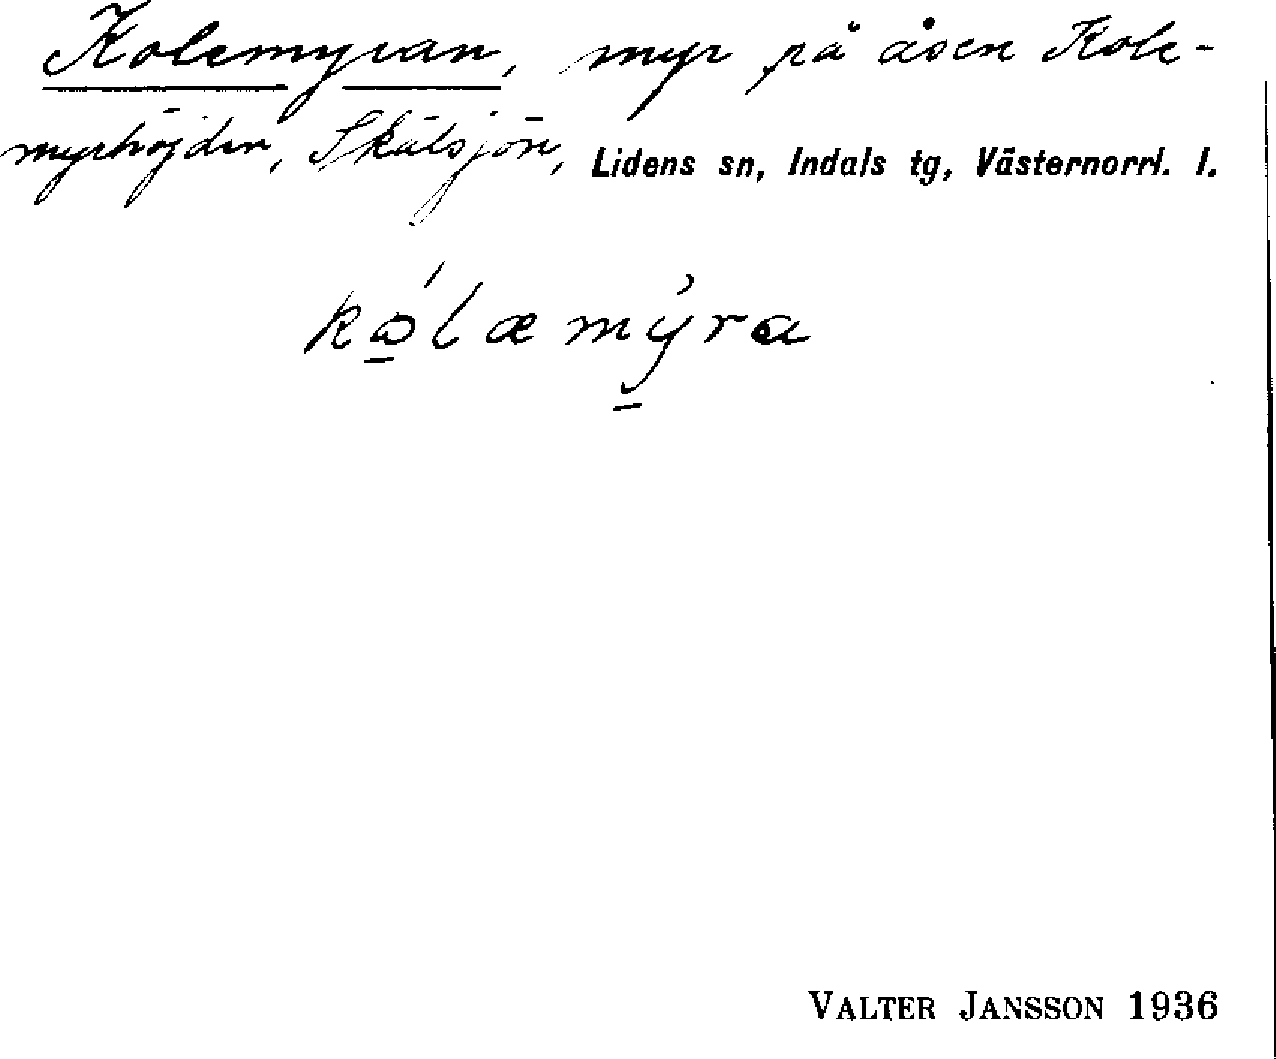 Kolemyran, myr på åsen Kole-
myrhöjden, Skälsjön, Lidens sn, Indals tg, Västernorrl. l.
kålæmyra
VALTER JANSSON 1936